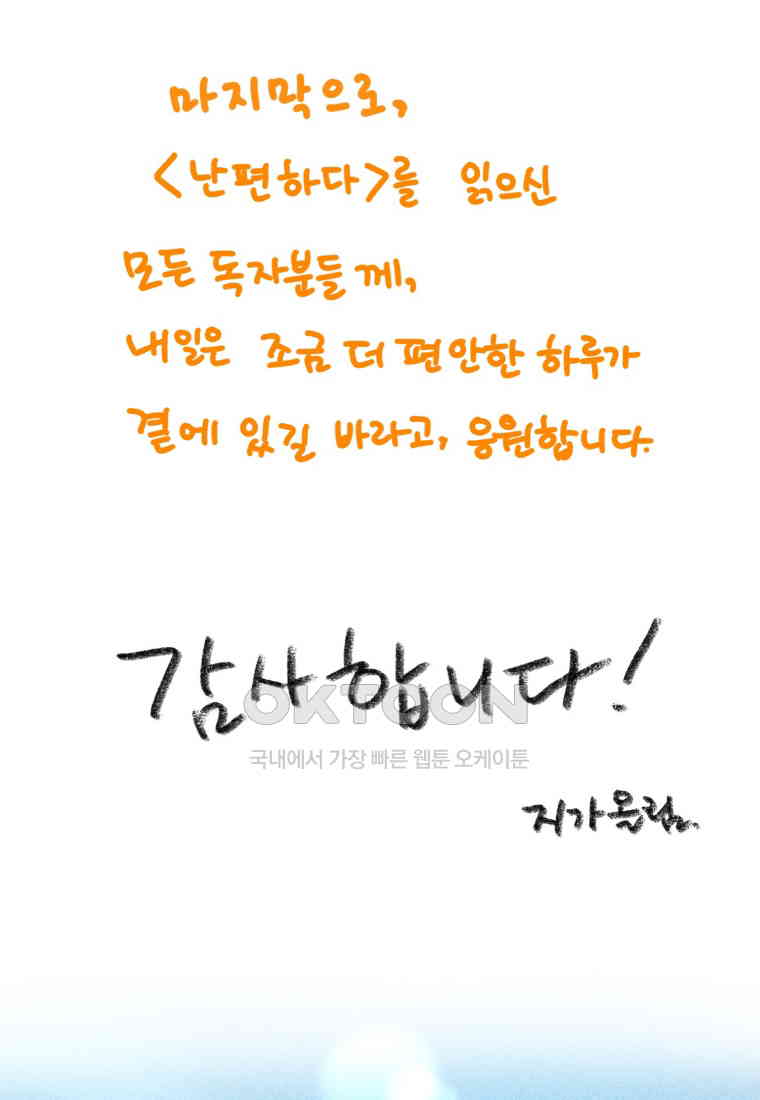 마지막으로,
<난편하다>를 읽으신
모든 독자분들께,
내일은 조금 더 편안한 하루가
곁에 있길 바라고, 응원합니다.
감사합니다!
OKTOON
국내에서 가장 빠른 웹툰 오케이툰
지가올림.